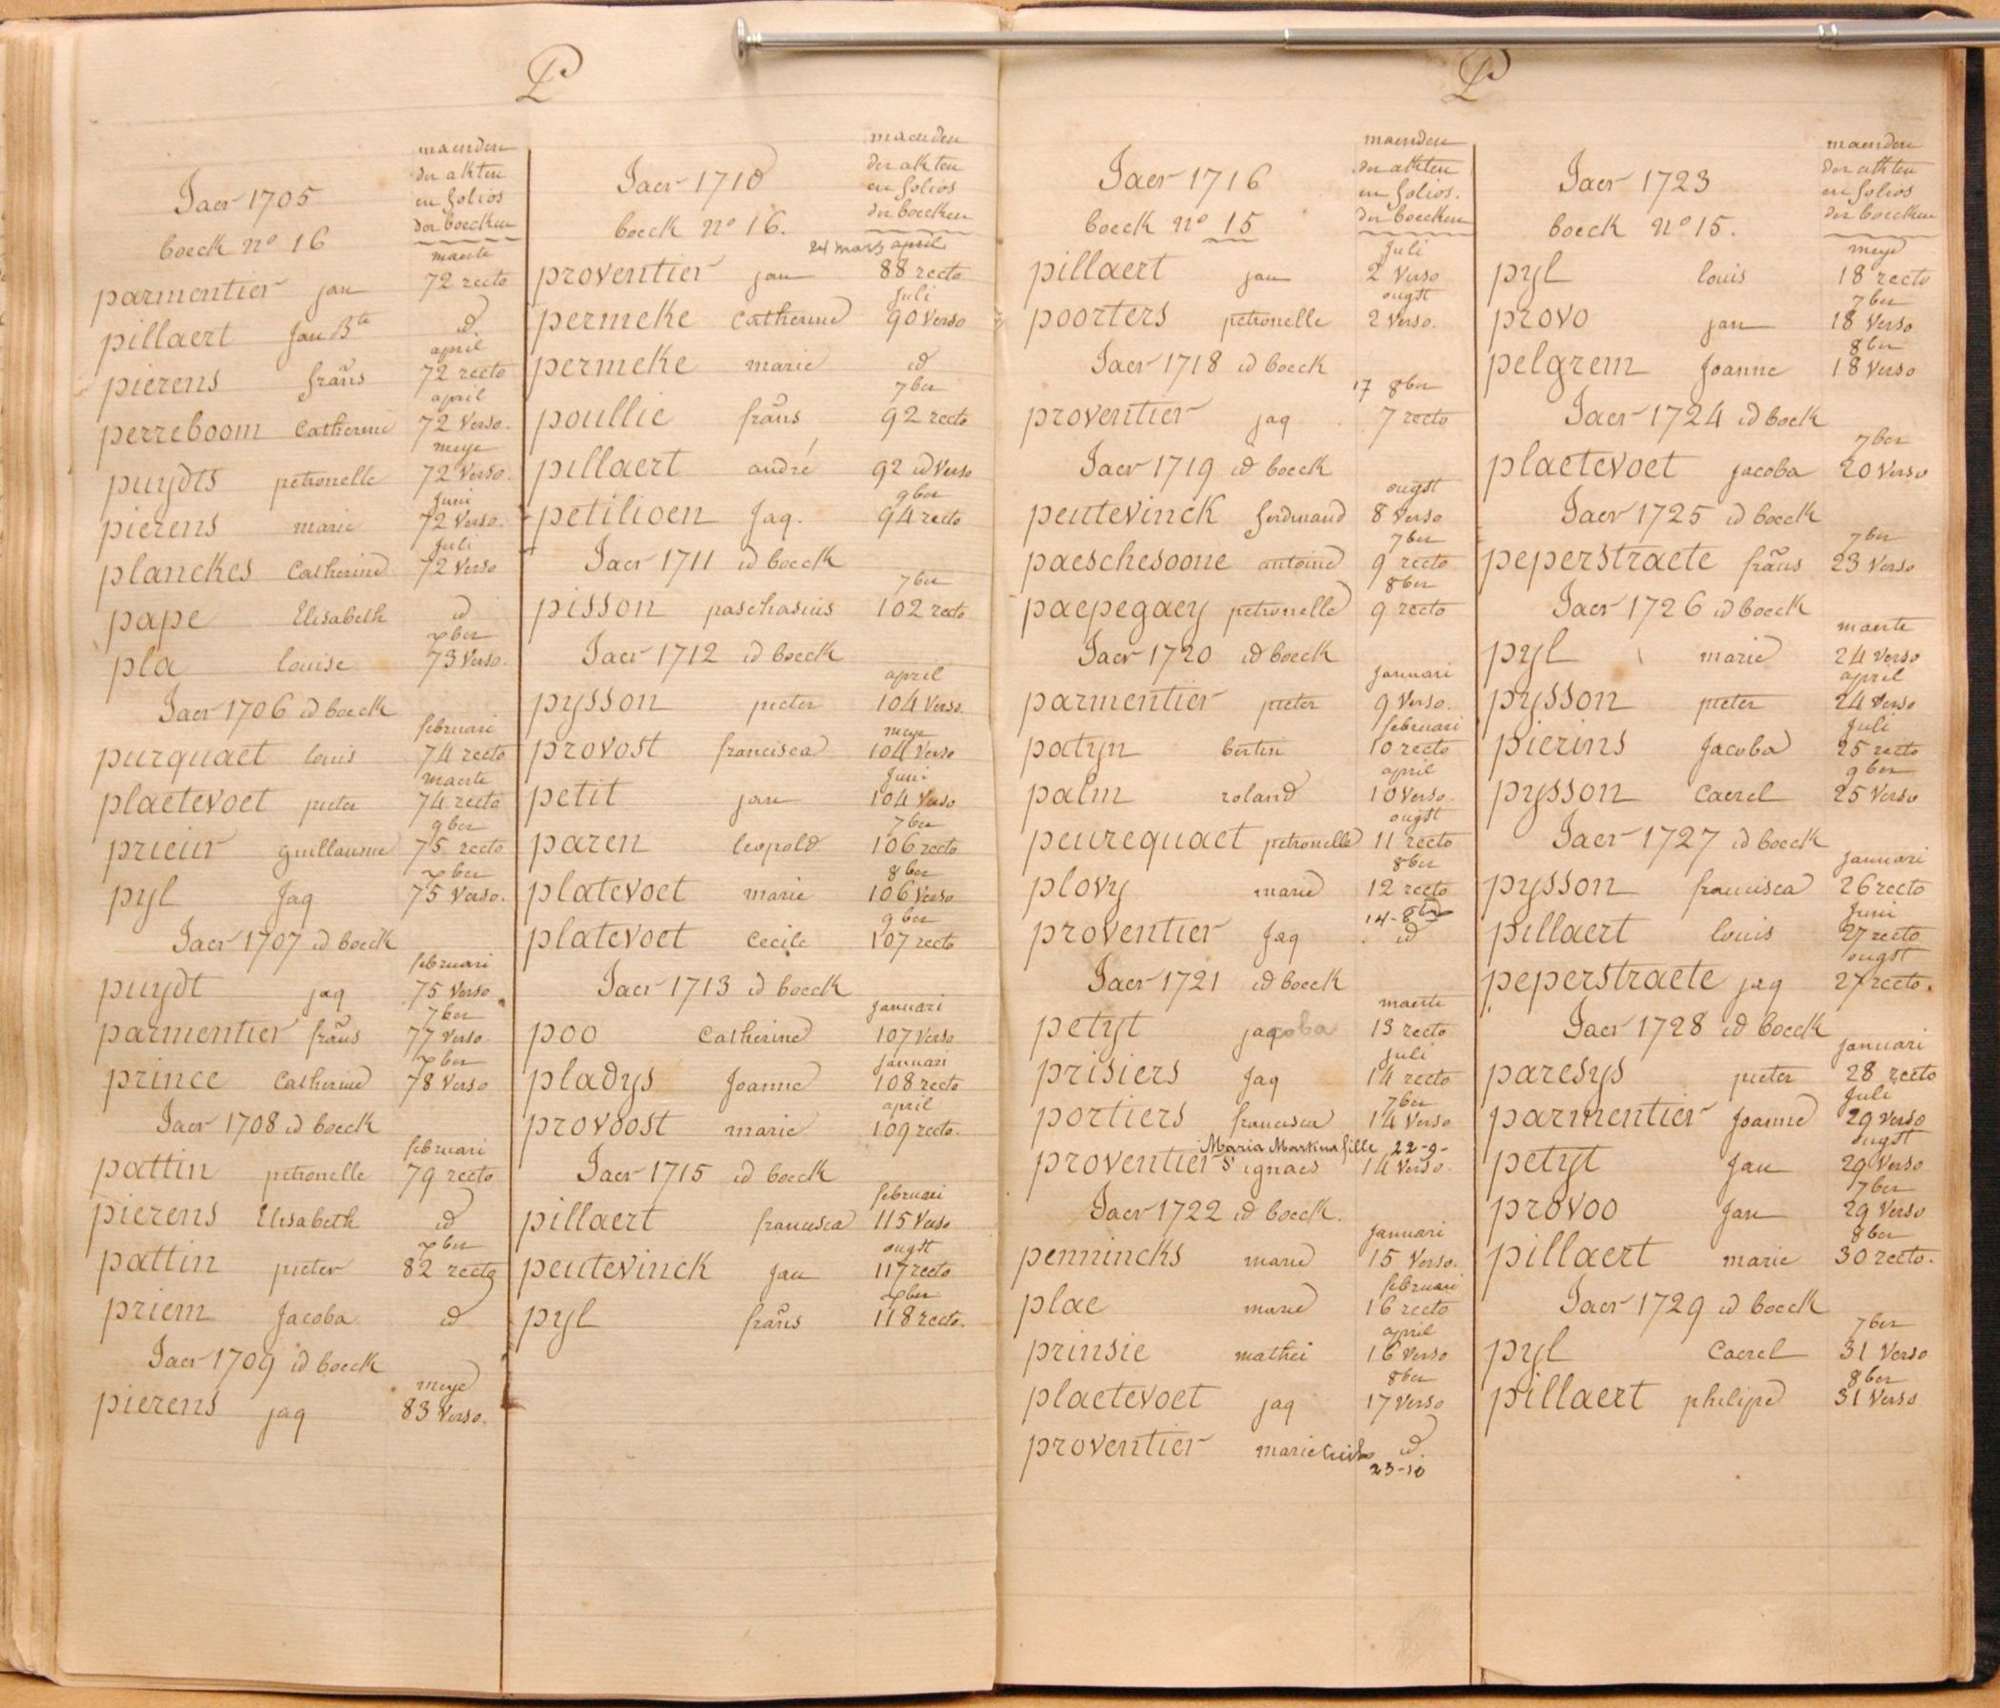 P
Jaer 1705
maenden
der akten
en folios
der boecken
boeck nº 16
maerte
parmentier jan 72 recto
pillaert Jan Bte id.
april
pierens frans 72 recto
april
perreboom Catherine 72 verso.
meye
puydts petronelle 72 verso.
Juni
pierens marie 72 verso.
Juli
planckes Catherine 72 verso
pape Elisabeth id
xber
pla louise 73 verso.
Jaer 1706 id boeck
februari
purquaet louis 74 recto
maerte
plaetevoet pieter 74 recto
9ber
prieur guillaume 75 recto
xber
pyl Jaq 75 verso.
Jaer 1707 id boeck
februari
puydt jaq 75 verso
7ber
parmentier frans 77 verso
xber
prince Catherine 78 verso
Jaer 1708 id boeck
februari
pattin petronelle 79 recto
pierens Elisabeth id
xber
pattin pieter 82 recto
priem Jacoba id
Jaer 1709 id boeck
meye
pierens jaq 83 verso.
Jaer 1710
maenden
der akten
en folios
der boecken
boeck nº 16.
24 mars april
proventier jan 88 recto
Juli
permeke Catherine 90 verso
permeke marie id
7ber
poullie frans 92 recto
pillaert andré 92 id verso
9ber
petilioen Jaq. 94 recto
Jaer 1711 id boeck
7ber
pisson paschasius 102 recto
Jaer 1712 id boeck
april
pysson pieter 104 verso.
meye
provost francisca 104 verso
Juni
petit jan 104 verso
7ber
paren leopold 106 recto
8ber
platevoet marie 106 verso
9ber
platevoet Cecile 107 recto
Jaer 1713 id boeck
Januari
poo Catherine 107 verso
Januari
pladys Joanne 108 recto
april
provoost marie 109 recto.
Jaer 1715 id boeck
februari
pillaert francisca 115 verso
ougst
peutevinck Jan 117 recto
xber
pyl frans 118 recto.
P
Jaer 1716
maenden
der akten
en folios.
der boecken
boeck nº 15
Juli
pillaert jan 2 verso
ougst
poorters petronelle 2 verso.
Jaer 1718 id boeck
17 8ber
proventier jaq 7 recto
Jaer 1719 id boeck
ougst
peutevinck ferdinand 8 verso
7ber
paeschesoone antoine 9 recto
8ber
paepegaey petronelle 9 recto
Jaer 1720 id boeck
Januari
parmentier pieter 9 verso.
februari
patyn bertin 10 recto
april
palm roland 10 verso.
ougst
peurequaet petronelle 11 recto
8ber
plovy marie 12 recto
14-8br
proventier Jaq id
Jaer 1721 id boeck
maerte
petyt jaqcoba 13 recto
Juli
prisiers Jaq 14 recto
7ber
portiers francisca 14 verso
Maria Martina fille 22-9-
proventier s' ignaes 14 verso.
Jaer 1722 id boeck.
Januari
pennincks marie 15 verso.
februari
plae marie 16 recto
april
prinsie mathei 16 verso
8ber
plaetevoet jaq 17 verso
proventier marie id.
23-10
Jaer 1723
maenden
der akten
en folios
der boecken
boeck nº 15.
meye
pyl louis 18 recto
7ber
provo jan 18 verso
8ber
pelgrem Joanne 18 verso
Jaer 1724 id boeck
7ber
plaetevoet Jacoba 20 verso
Jaer 1725 id boeck
7ber
peperstraete frans 23 verso
Jaer 1726 id boeck
maerte
pyl marie 24 verso
april
pysson pieter 24 verso
Juli
pierins Jacoba 25 recto
9ber
pysson Caerel 25 verso
Jaer 1727 id boeck
Januari
pysson francisca 26 recto
Juni
pillaert louis 27 recto
ougst
peperstraete jaq 27 recto.
Jaer 1728 id boeck
Januari
paresys pieter 28 recto
Juli
parmentier Joanne 29 verso
ougst
petyt Jan 29 verso
7ber
provoo Jan 29 verso
8ber
pillaert marie 30 recto.
Jaer 1729 id boeck
7ber
pyl Caerel 31 verso
8ber
pillaert philipe 31 verso